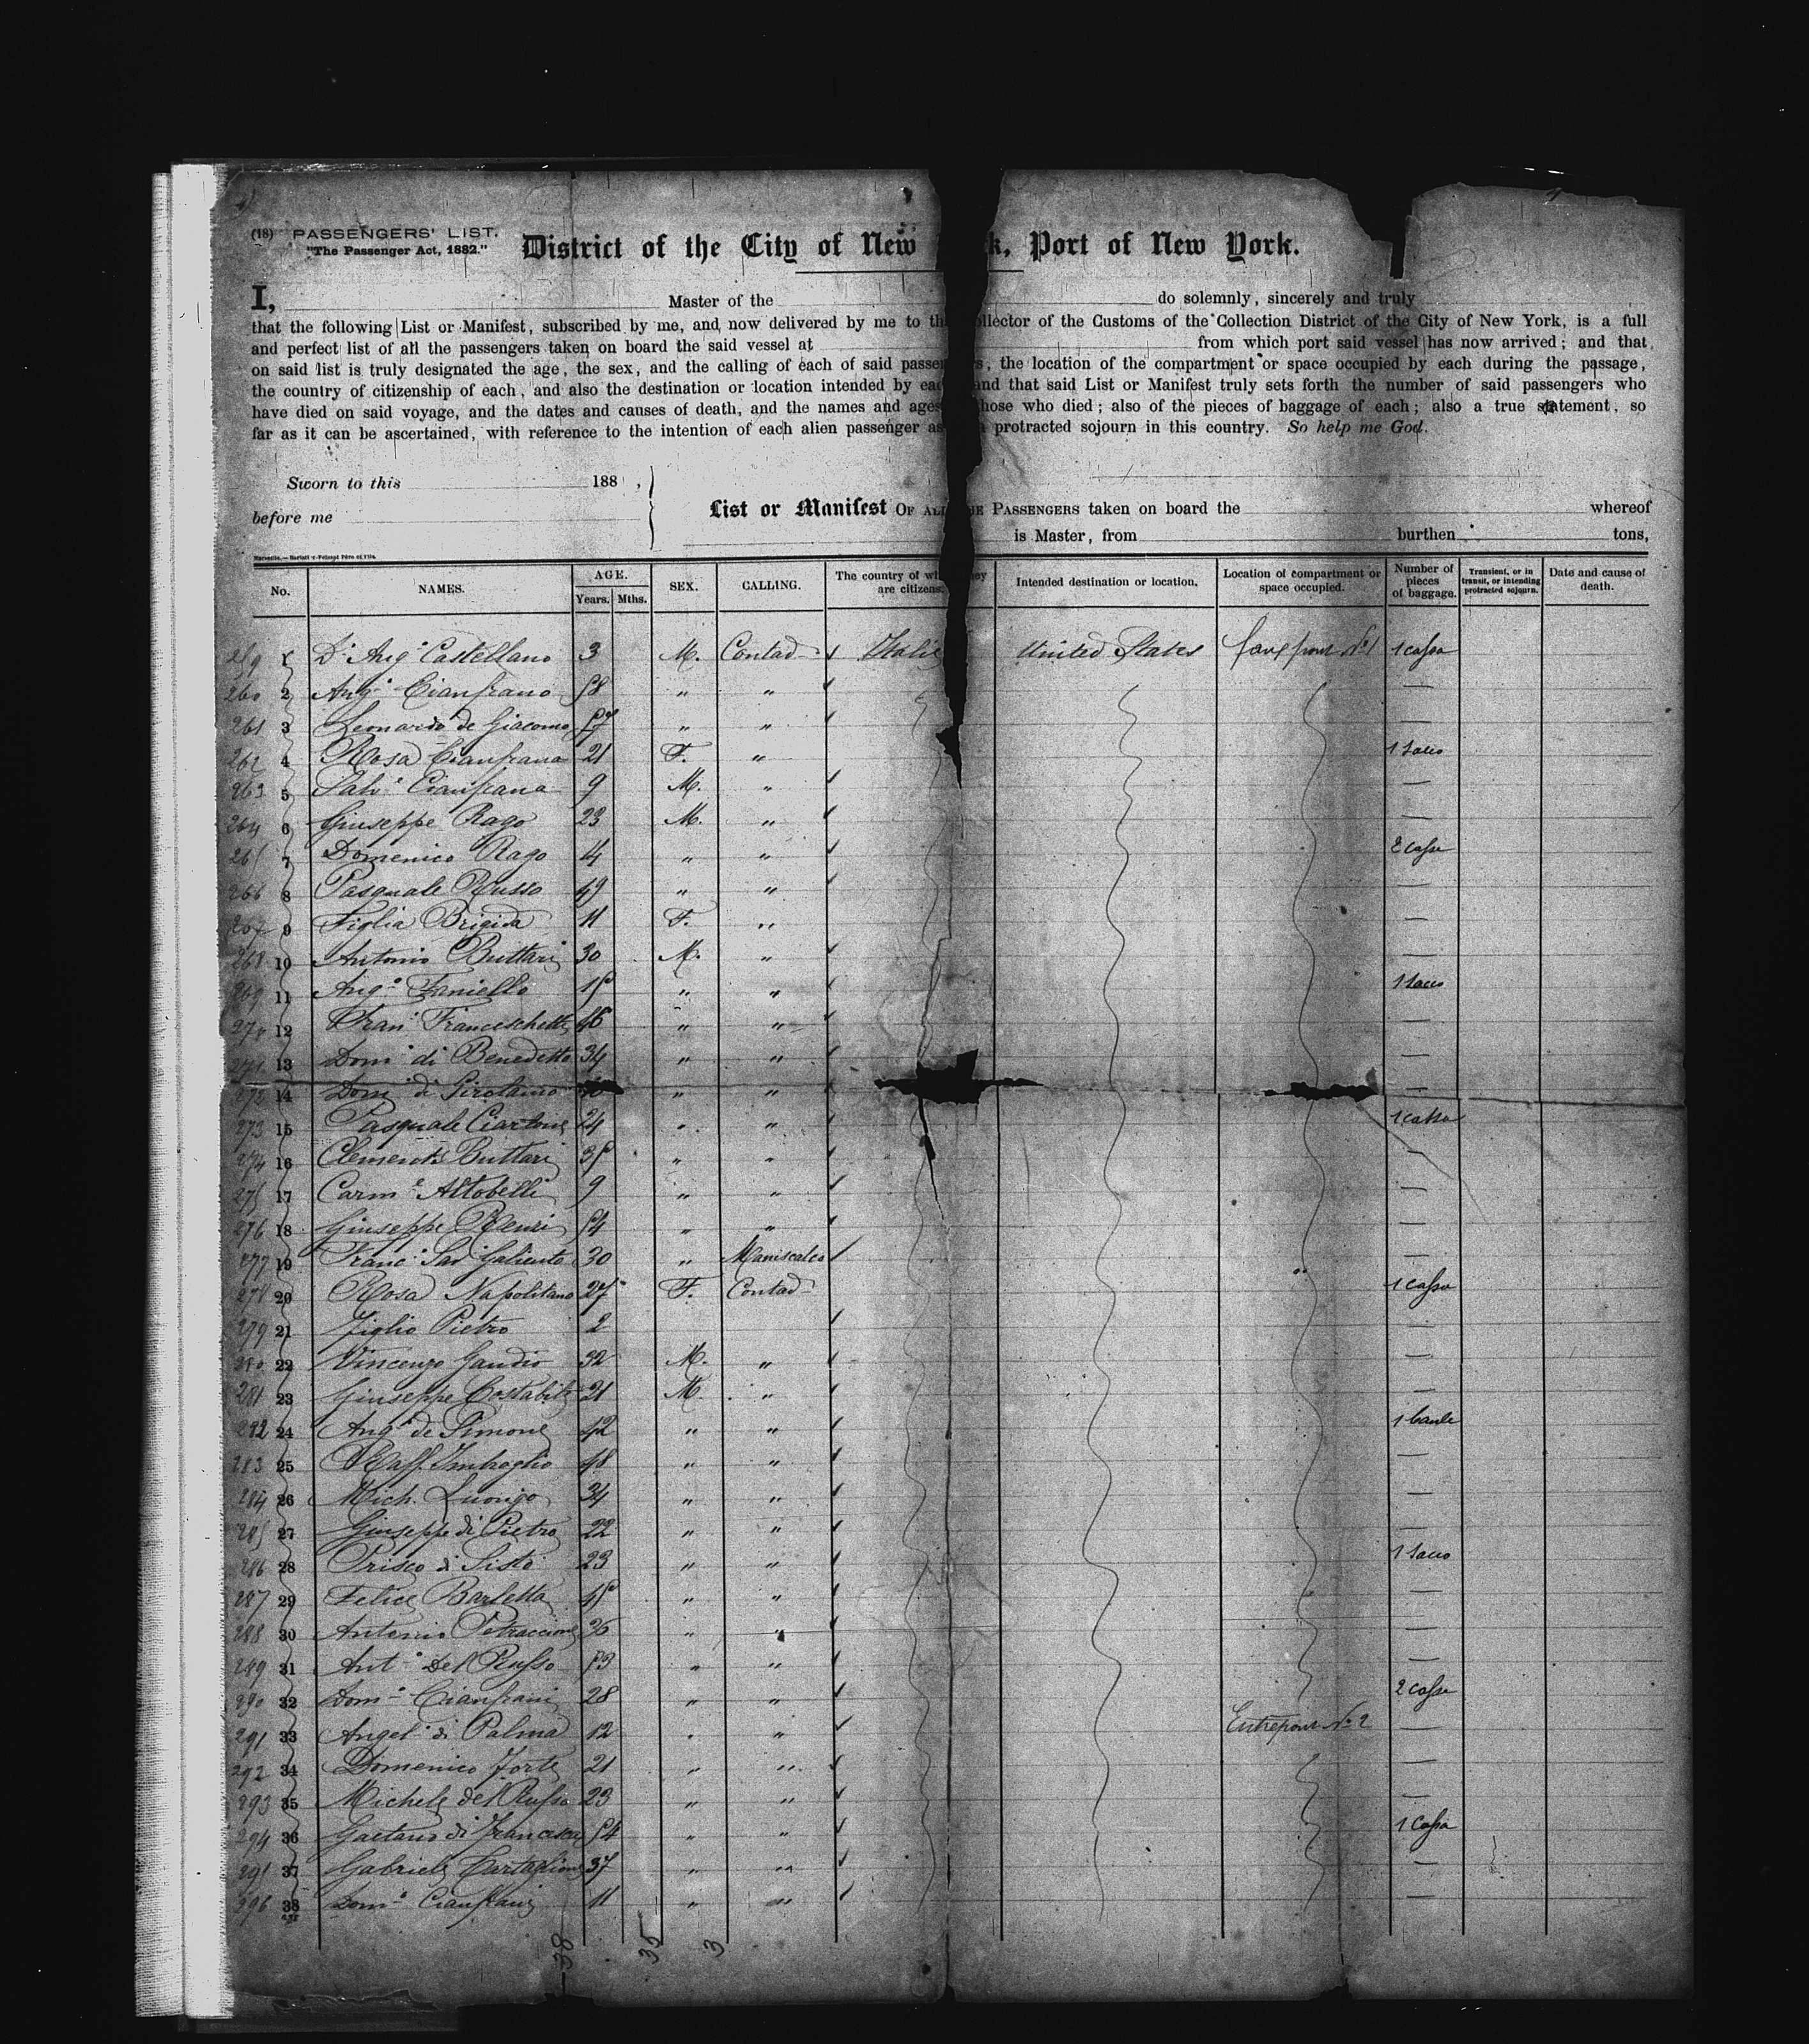 (18) PASSENGERS' LIST.
"The Passenger Act, 1882."
District of the City of New k, Port of New York.
I, Master of the do solemnly, sincerely and truly
that the following List or Manifest, subscribed by me, and now delivered by me to th ollector of the Customs of the Collection District of the City of New York, is a full
and perfect list of all the passengers taken on board the said vessel at from which port said vessel has now arrived; and that
on said list is truly designated the age, the sex, and the calling of each of said passen s, the location of the compartment or space occupied by each during the passage,
the country of citizenship of each, and also the destination or location intended by eac and that said List or Manifest truly sets forth the number of said passengers who
have died on said voyage, and the dates and causes of death, and the names and ages hose who died; also of the pieces of baggage of each; also a true statement, so
far as it can be ascertained, with reference to the intention of each alien passenger as protracted sojourn in this country. So help me God.
Sworn to this 188 ,
before me
List or Manifest OF ALL HE PASSENGERS taken on board the whereof
is Master, from burthen tons,
No. NAMES. AGE. Years. Mths. SEX. CALLING. The country of wh ey are citizens. Intended destination or location. Location of compartment or space occupied. Number of pieces of baggage. Transient, or in transit, or intending protracted sojourn. Date and cause of death.
259 1 Di Ang. Castellano 3 M. Contad. Italie United States No 1 1 cassa
260 2 Ang. Cianfrano 58 " " —
261 3 Leonardo de Giacomo 57 " " —
262 4 Rosa Cianfrana 21 F. " 1 sacco
263 5 Salv. Cianfrana 9 M. " —
264 6 Giuseppe Rago 23 M. " —
265 7 Domenico Rago 4 " " 2 casse
266 8 Pasquale Russo 49 " " —
267 9 Figlia Brigida 11 F. " —
268 10 Antonio Buttari 30 M. " —
269 11 Ango Faniello 15 " " 1 sacco
270 12 Fran. Franceschetti 46 " " —
271 13 Dom. di Benedetto 34 " " —
272 14 Dom. di Girolamo " " —
273 15 Pasquale Ciartone 24 " " 1 cassa
274 16 Clemente Buttari 35 " " —
275 17 Carm. Altobelli 9 " " —
276 18 Giuseppe Renzi 54 " " —
277 19 Franc. Sav. Galiento 30 " Maniscalco —
278 20 Rosa Napolitano 27 F. Contad. 1 cassa
279 21 Figlio Pietro 2 —
280 22 Vincenzo Gaudio 32 M. " —
281 23 Giuseppe Costabile 21 M " —
282 24 Ang. de Simone 42 " " 1 baule
283 25 Raff. Imbroglio 48 " " —
284 26 Mich. Luongo 34 " " —
285 27 Giuseppe di Pietro 22 " " —
286 28 Prisco di Sisto 23 " " 1 sacco
287 29 Felice Barletta 45 " " —
288 30 Antonio Petraccione 36 " " —
289 31 Ant. Del Russo 53 " " —
290 32 Dom. Cianfrani 28 " " 2 casse
291 33 Angel. di Palma 12 " " Entrepont No 2 —
292 34 Domenico Forte 21 " " —
293 35 Michele del Russo 23 " " —
294 36 Gaetano di Francesco 54 " " 1 Cassa
295 37 Gabriele Tartaglione 37 " " —
296 38 Dom. Cianfrani 11 " " —
38 35 3